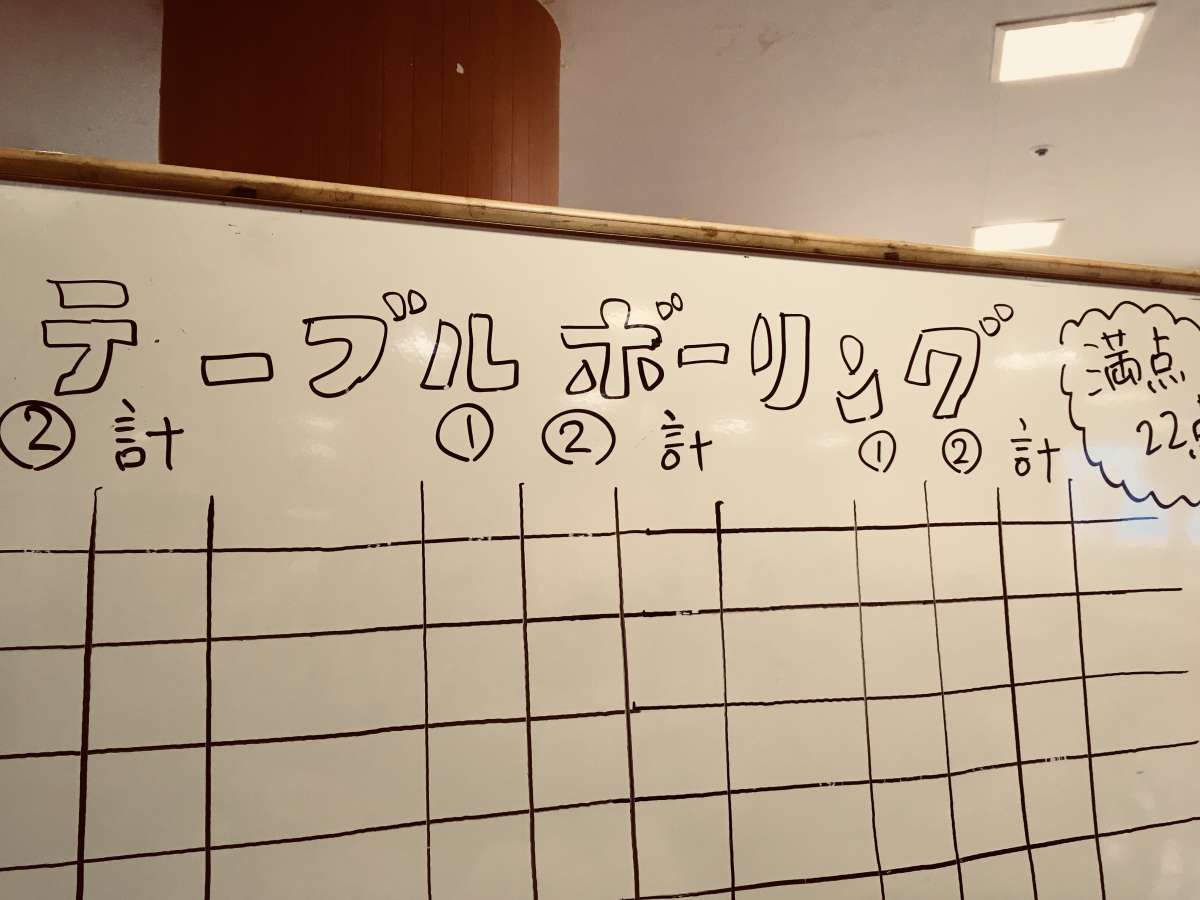 テーブルボーリング
満点
22点
② 計 ① ② 計 ① ② 計